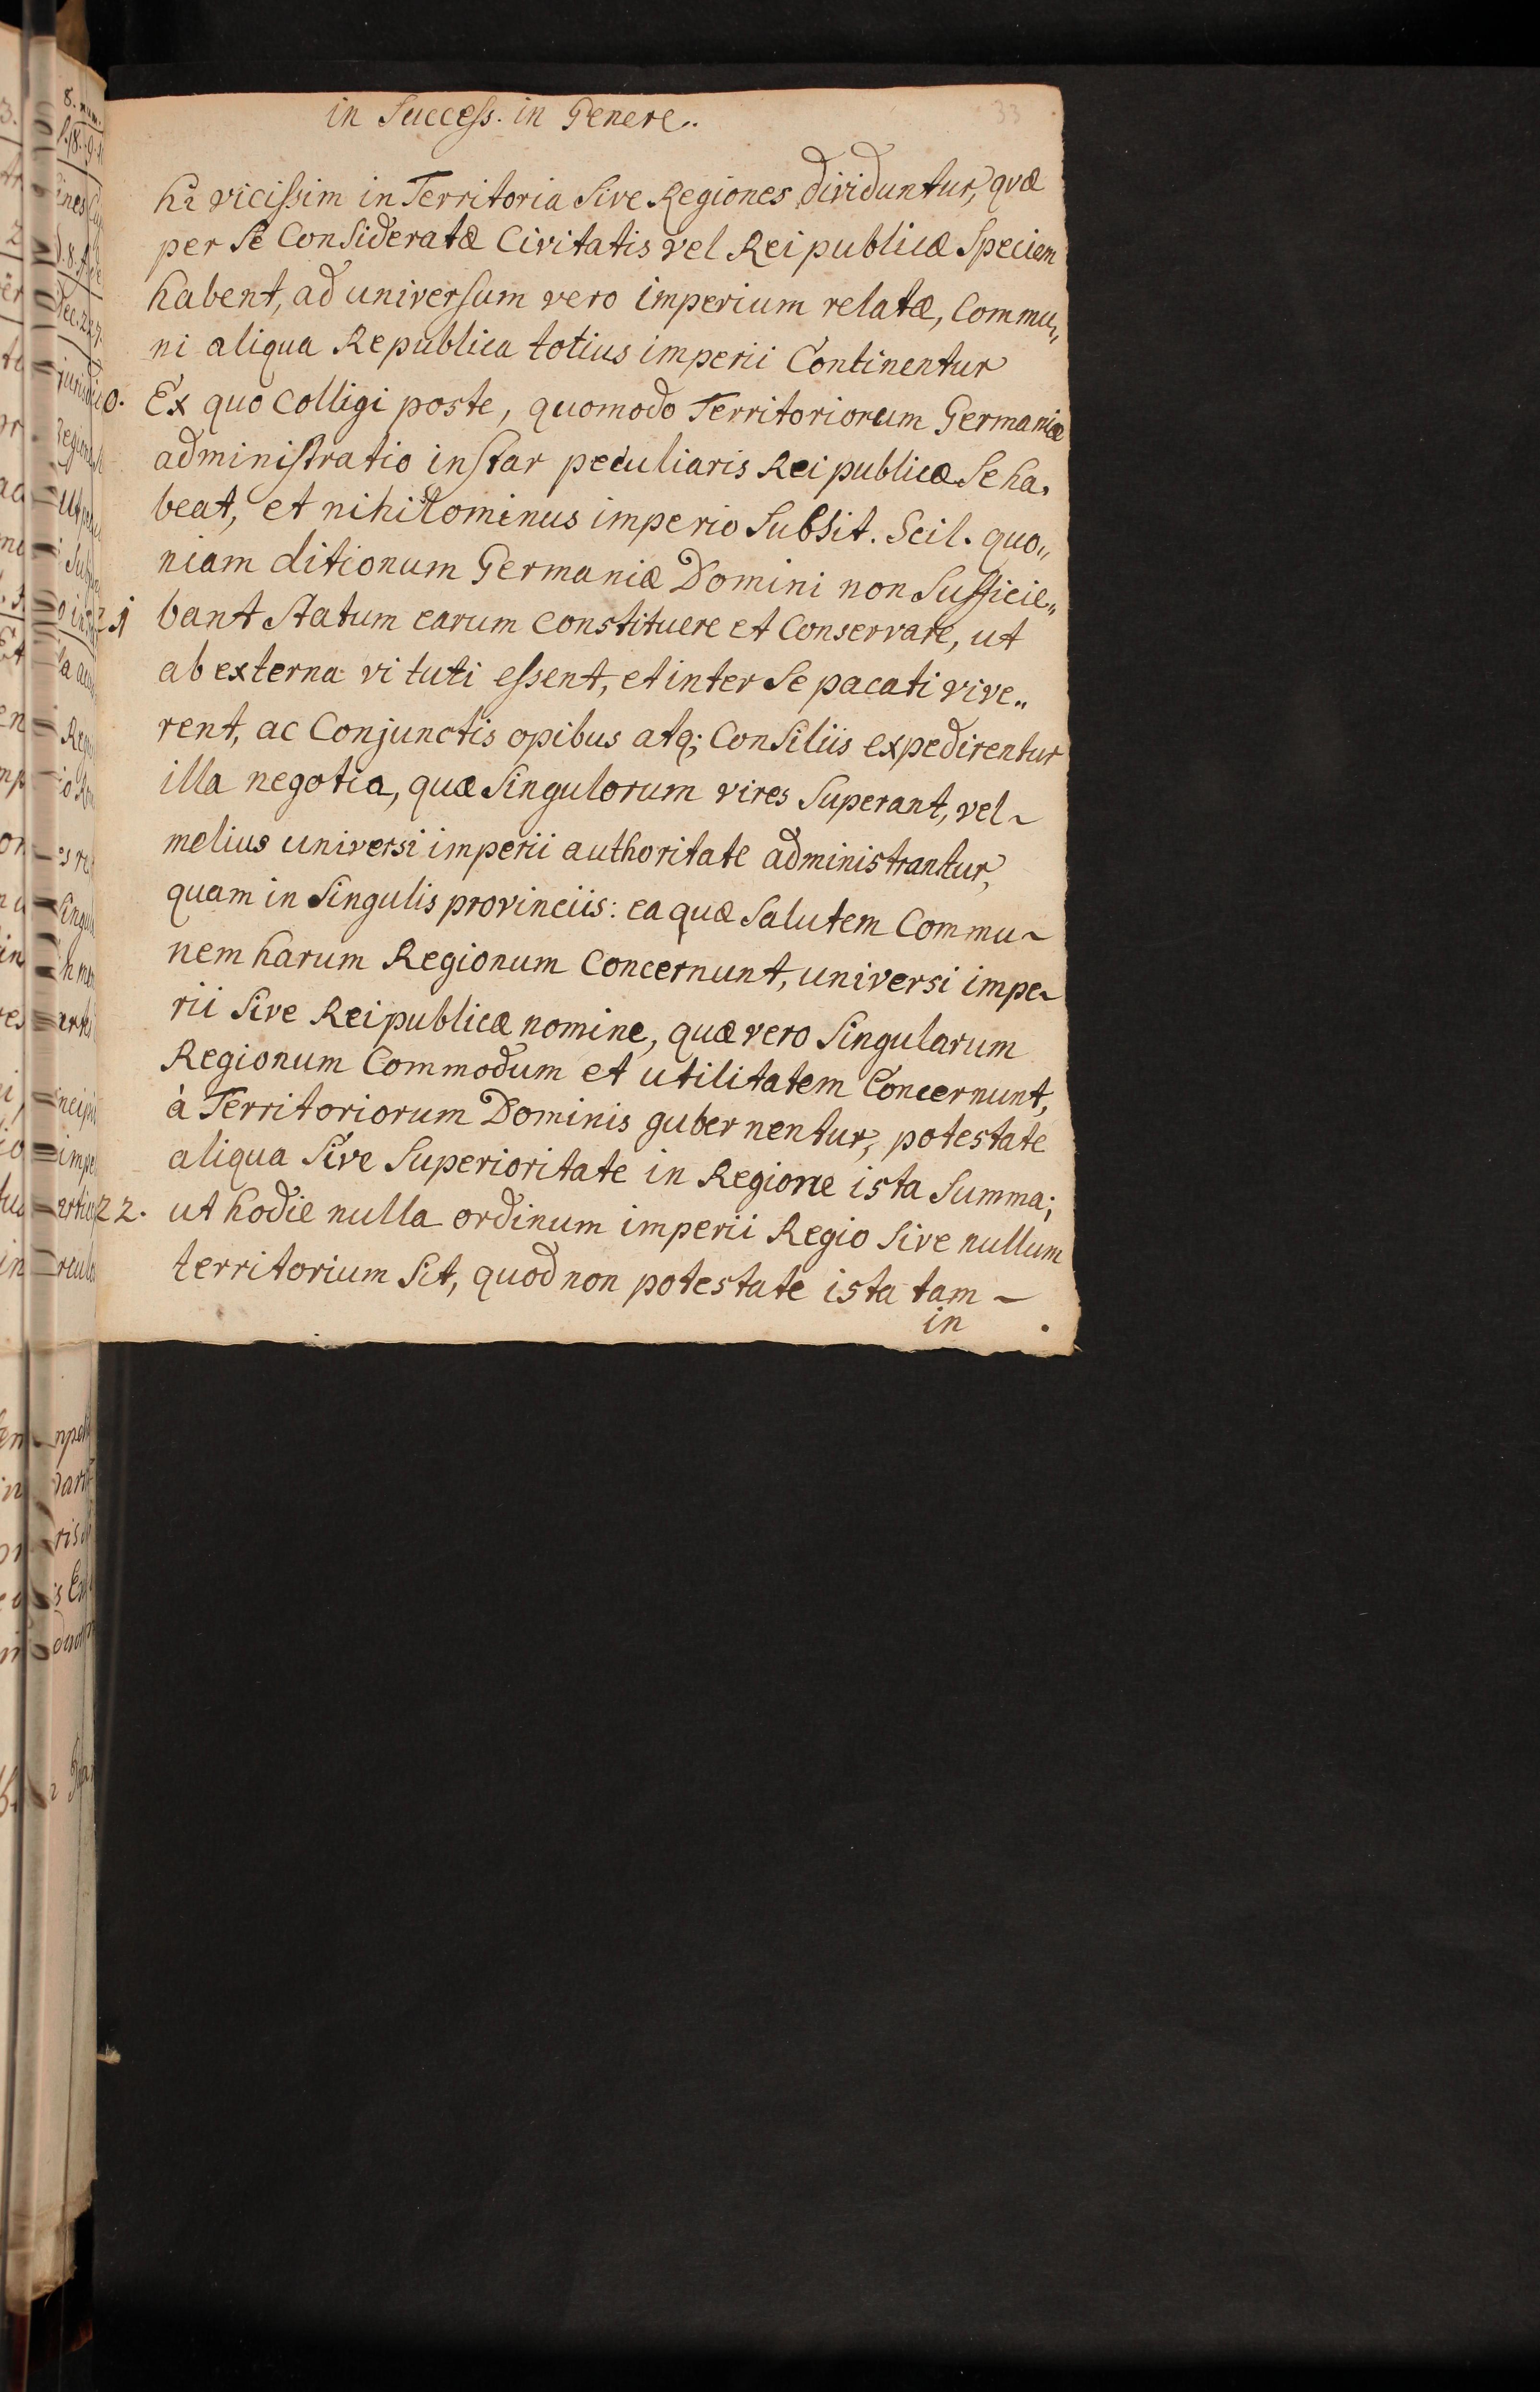 in Success. in Genere..
33
hi vicissim in Territoria Sive Regiones dividuntur, qvæ
per Se Consideratæ Civitatis vel Reipublicæ Speciem
habent, ad universum vero imperium relatæ, Commu„
ni aliqua Republica totius imperii Continentur
0. Ex quo Colligi poste, quomodo Territoriorum Germaniæ
administratio instar peculiaris Reipublicæ Se ha,
beat, et nihilominus imperio Subsit. Scil. quo„
niam ditionum Germaniæ Domini non Sufficie„
21 bant Statum earum Constituere et Conservare, ut
ab externa vi tuti essent, et inter Se pacati vive„
rent, ac Conjunctis opibus atq; Consiliis expedirentur
illa negotia, quæ Singulorum vires Superant, vel ~
melius universi imperii authoritate administrantur,
quam in Singulis provinciis: ea quæ Salutem Commu~
nem harum Regionum Concernunt, universi impe~
rii Sive Reipublicæ nomine, quæ vero Singularum
Regionum Commodum et utilitatem Concernunt,
à Territoriorum Dominis gubernentur, potestate
aliqua Sive Superioritate in Regione ista Summa;
22. ut hodie nulla ordinum imperii Regio Sive nullum
territorium Sit, quod non potestate ista tam ~
in